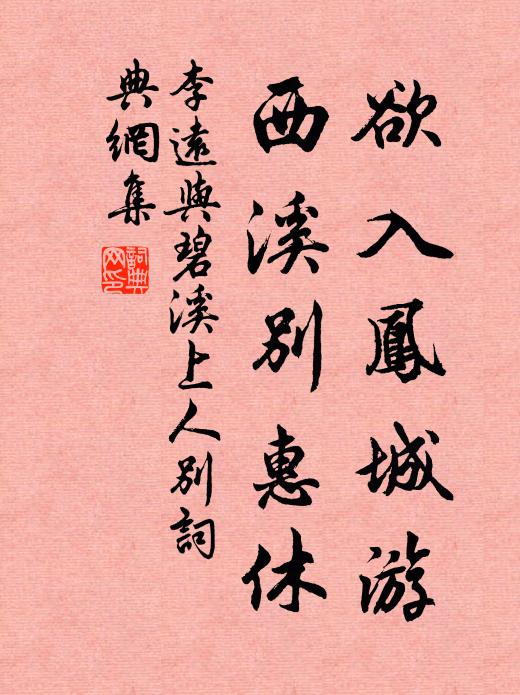 欲入鳳城游
西溪別惠休
李遠與碧溪上人別詞
典網集
詞典
网印